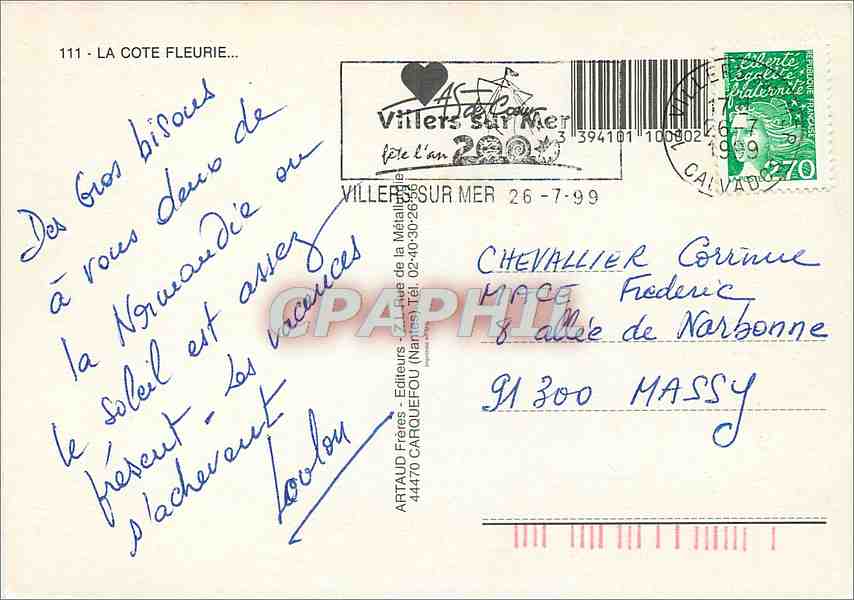 111 - LA COTE FLEURIE...
Des Gros bisous
à vous deux de
la Normandie ou
le soleil est assez
présent - Les vacances
s'achevent
Loulou
As de Coeur
Villers sur Mer
fête l'an 2000
3 394101 100802
VILLERS SUR MER 26 -7-99
VILLERS
17H
26-7
1999
CALVADOS
liberté
égalité
fraternité
REPUBLIQUE FRANÇAISE
2,70
ARTAUD Frères - Editeurs - Z.I. Rue de la Métallurgie
44470 CARQUEFOU (Nantes) Tél. 02-40-30-26-56
CPAPHIL
CHEVALLIER Corinne
MACE Frederic
8 allée de Narbonne
91300 MASSY